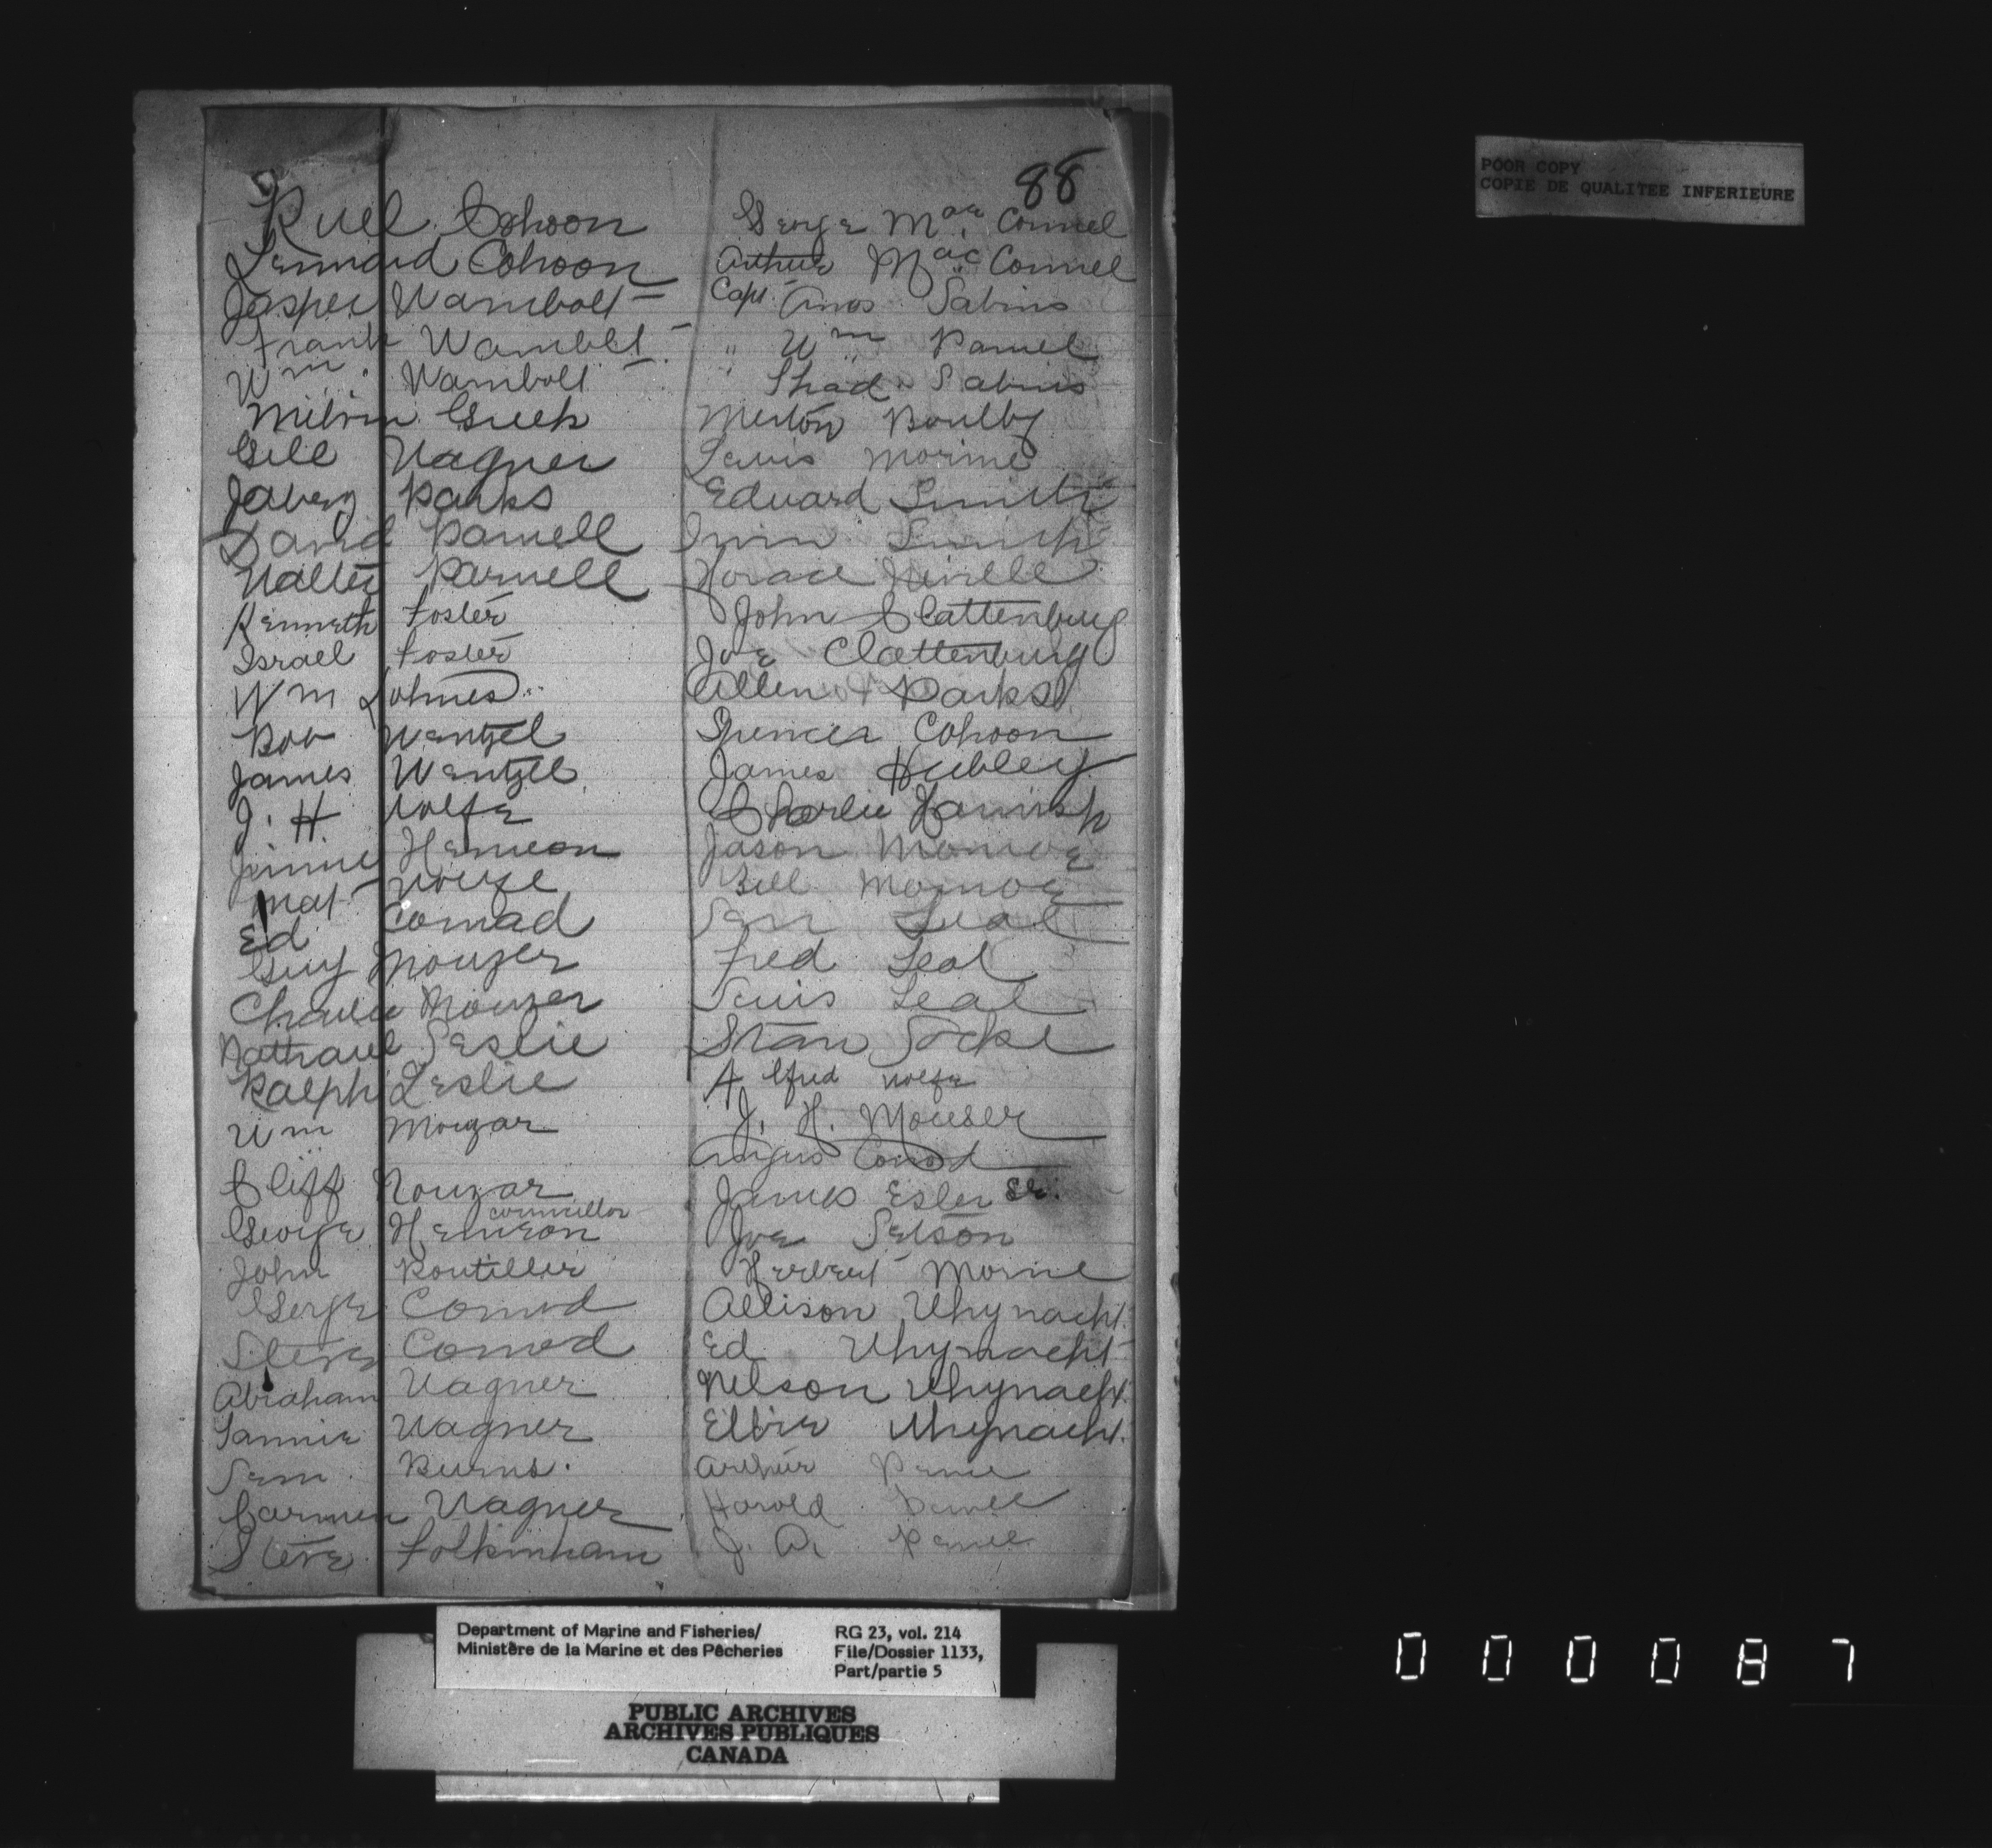 88
Ruel Cohoon
Lennard Cohoon
Jasper Wambolt
Frank Wambolt
Wm Wambolt
Milvin Greek
Gill Wagner
Jabez Parks
David Parnell
Walter Parnell
Kenneth Foster
Israel Foster
Wm Lohnes
Bob Wentzel
James Wentzell
J. H. Wolfe
Jimmie Hemeon
Mat Wolfe
Ed Conrad
Guy Mouzer
Charlie Mouzer
Nathanel Leslie
Ralph Leslie
Wm Mouzar
Cliff Mouzar
councillor
George Hemeon
John Boutillier
George Conrod
Steve Conrod
Abraham Wagner
Lannie Wagner
Sam Burns.
Carmen Wagner
Steve Folkinham
George Mac Connel
Arthur Mac Connel
Capt. Amos Sabins
" Wm Parnel
" Shad Sabins
Merton Boulby
Lewis Morine
Edward Smith
Irvin Smith
Horace Neville
John Clattenburg
Joe Clattenburg
Allen Parks
Spencer Cohoon
James Hubley
Charlie Hamish
Jason Monroe
Bill Monroe
Sam Leal
Fred Leal
Lewis Leal
Stan Locke
Alfred Wolfe
J. H. Mouser
Angus Conrod
James Esler Sr.
Joe Letson
Herbert Morine
Allison Whynacht
Ed Whynacht
Nelson Whynacht
Elbie Whynacht.
Arthur
Harold
J. A.
POOR COPY
COPIE DE QUALITEE INFERIEURE
Department of Marine and Fisheries/
Ministère de la Marine et des Pêcheries
RG 23, vol. 214
File/Dossier 1133,
Part/partie 5
PUBLIC ARCHIVES
ARCHIVES PUBLIQUES
CANADA
000087